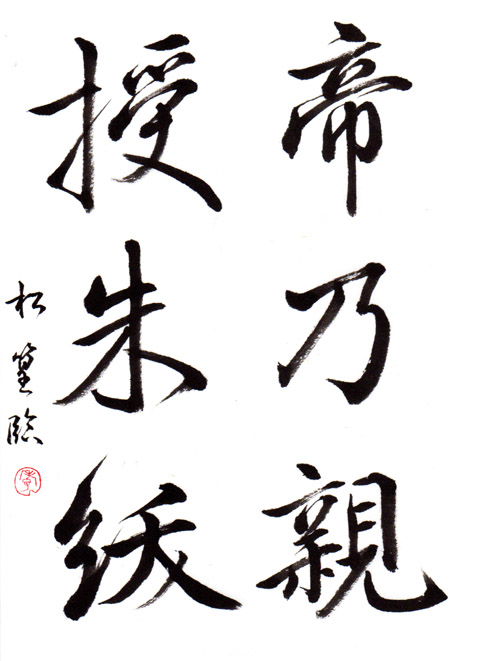 帝乃親
授朱紱
松篁臨